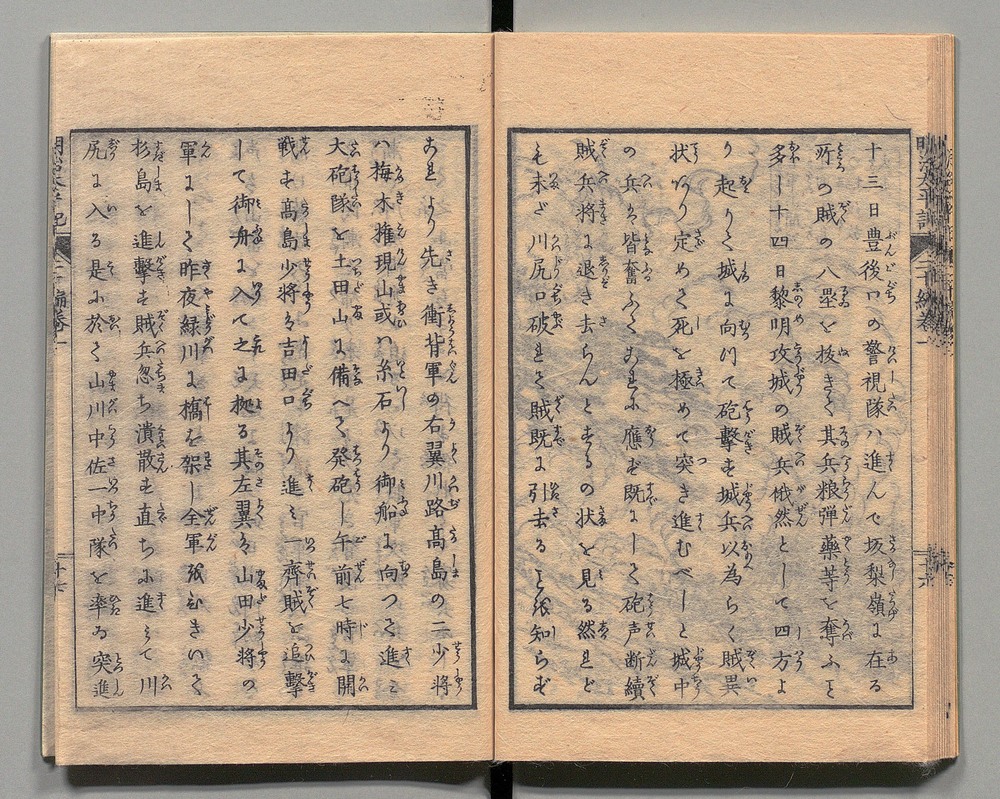 十三日豊後口の警視隊ハ進んで坂梨嶺に在る
所の賊の八塁を抜きて其兵粮弾薬等を奪ふこと
多し十四日黎明攻城の賊兵俄然として四方よ
り起りて城に向けて砲撃す城兵以為らく賊異
状あり定めて死を極めて突き進むべしと城中
の兵も皆奮ふてこれに應ず既にして砲声断續
賊兵将に退き去らんとするの状を見る然れど
も未だ川尻口破れて賊既に引去るを知らず
これより先き衝背軍の右翼川路髙島の二少将
ハ梅木権現山或ハ糸石より御船に向つて進み
大砲隊を土田山に備へて発砲し午前七時に開
戦す髙島少将は吉田口より進み一齊賊を追撃
して御舟に入て之に拠る其左翼は山田少将の
軍にして昨夜緑川に橋を架し全軍を率いて
杉島を進撃す賊兵忽ち潰散す直ちに進みて川
尻に入る是に於て山川中佐一中隊を率ゐ突進
明治太平記 二十編巻一
十六